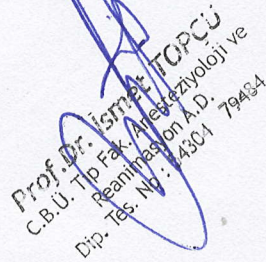 Prof.Dr. İsmet TOPCU
C.B.Ü. Tıp Fak. Anesteziyoloji ve
Reanimasyon A.D.
Dip. Tes. No : 84304 79484